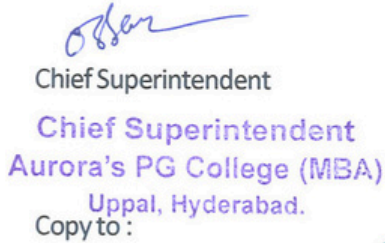 Chief Superintendent
Chief Superintendent
Aurora's PG College (MBA)
Uppal, Hyderabad.
Copy to :